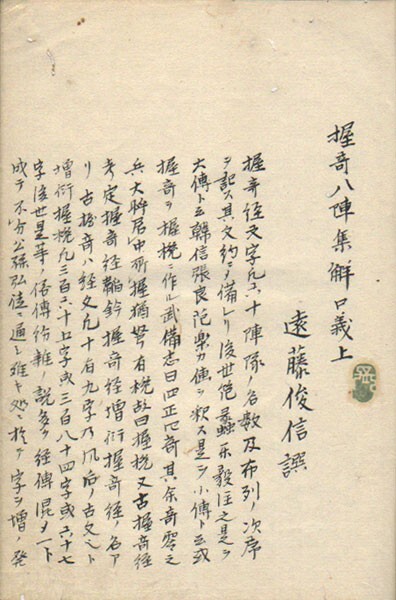 握奇八陣集解口義上
遠藤俊信譔
握奇経文字凡六十陣隊ノ名数及布列ノ次序
ヲ記ス其文約ニメ備レリ後世范蠡楽毅注之是ヲ
大傳ト云韓信張良范樂カ傳ヲ釈ス是ヲ小傳ト云或
握奇ヲ握機ニ作ル武備志曰四正四奇其余奇零之
兵大将居中所握猶弩有機故曰握機又古握奇経
考定握奇経韜鈐握奇経増衍握奇経ノ名ア
リ古握奇ハ経文凡十有九字乃風后ノ古文ニト
増衍握機凡三百六十上字或三百八十四字或六十七
字後世是等ノ俗傳紛雑ノ説多ク経傳混メ一ト
成テ不分公孫弘ニ通シ難キ処ニ於テ字ヲ増ノ発